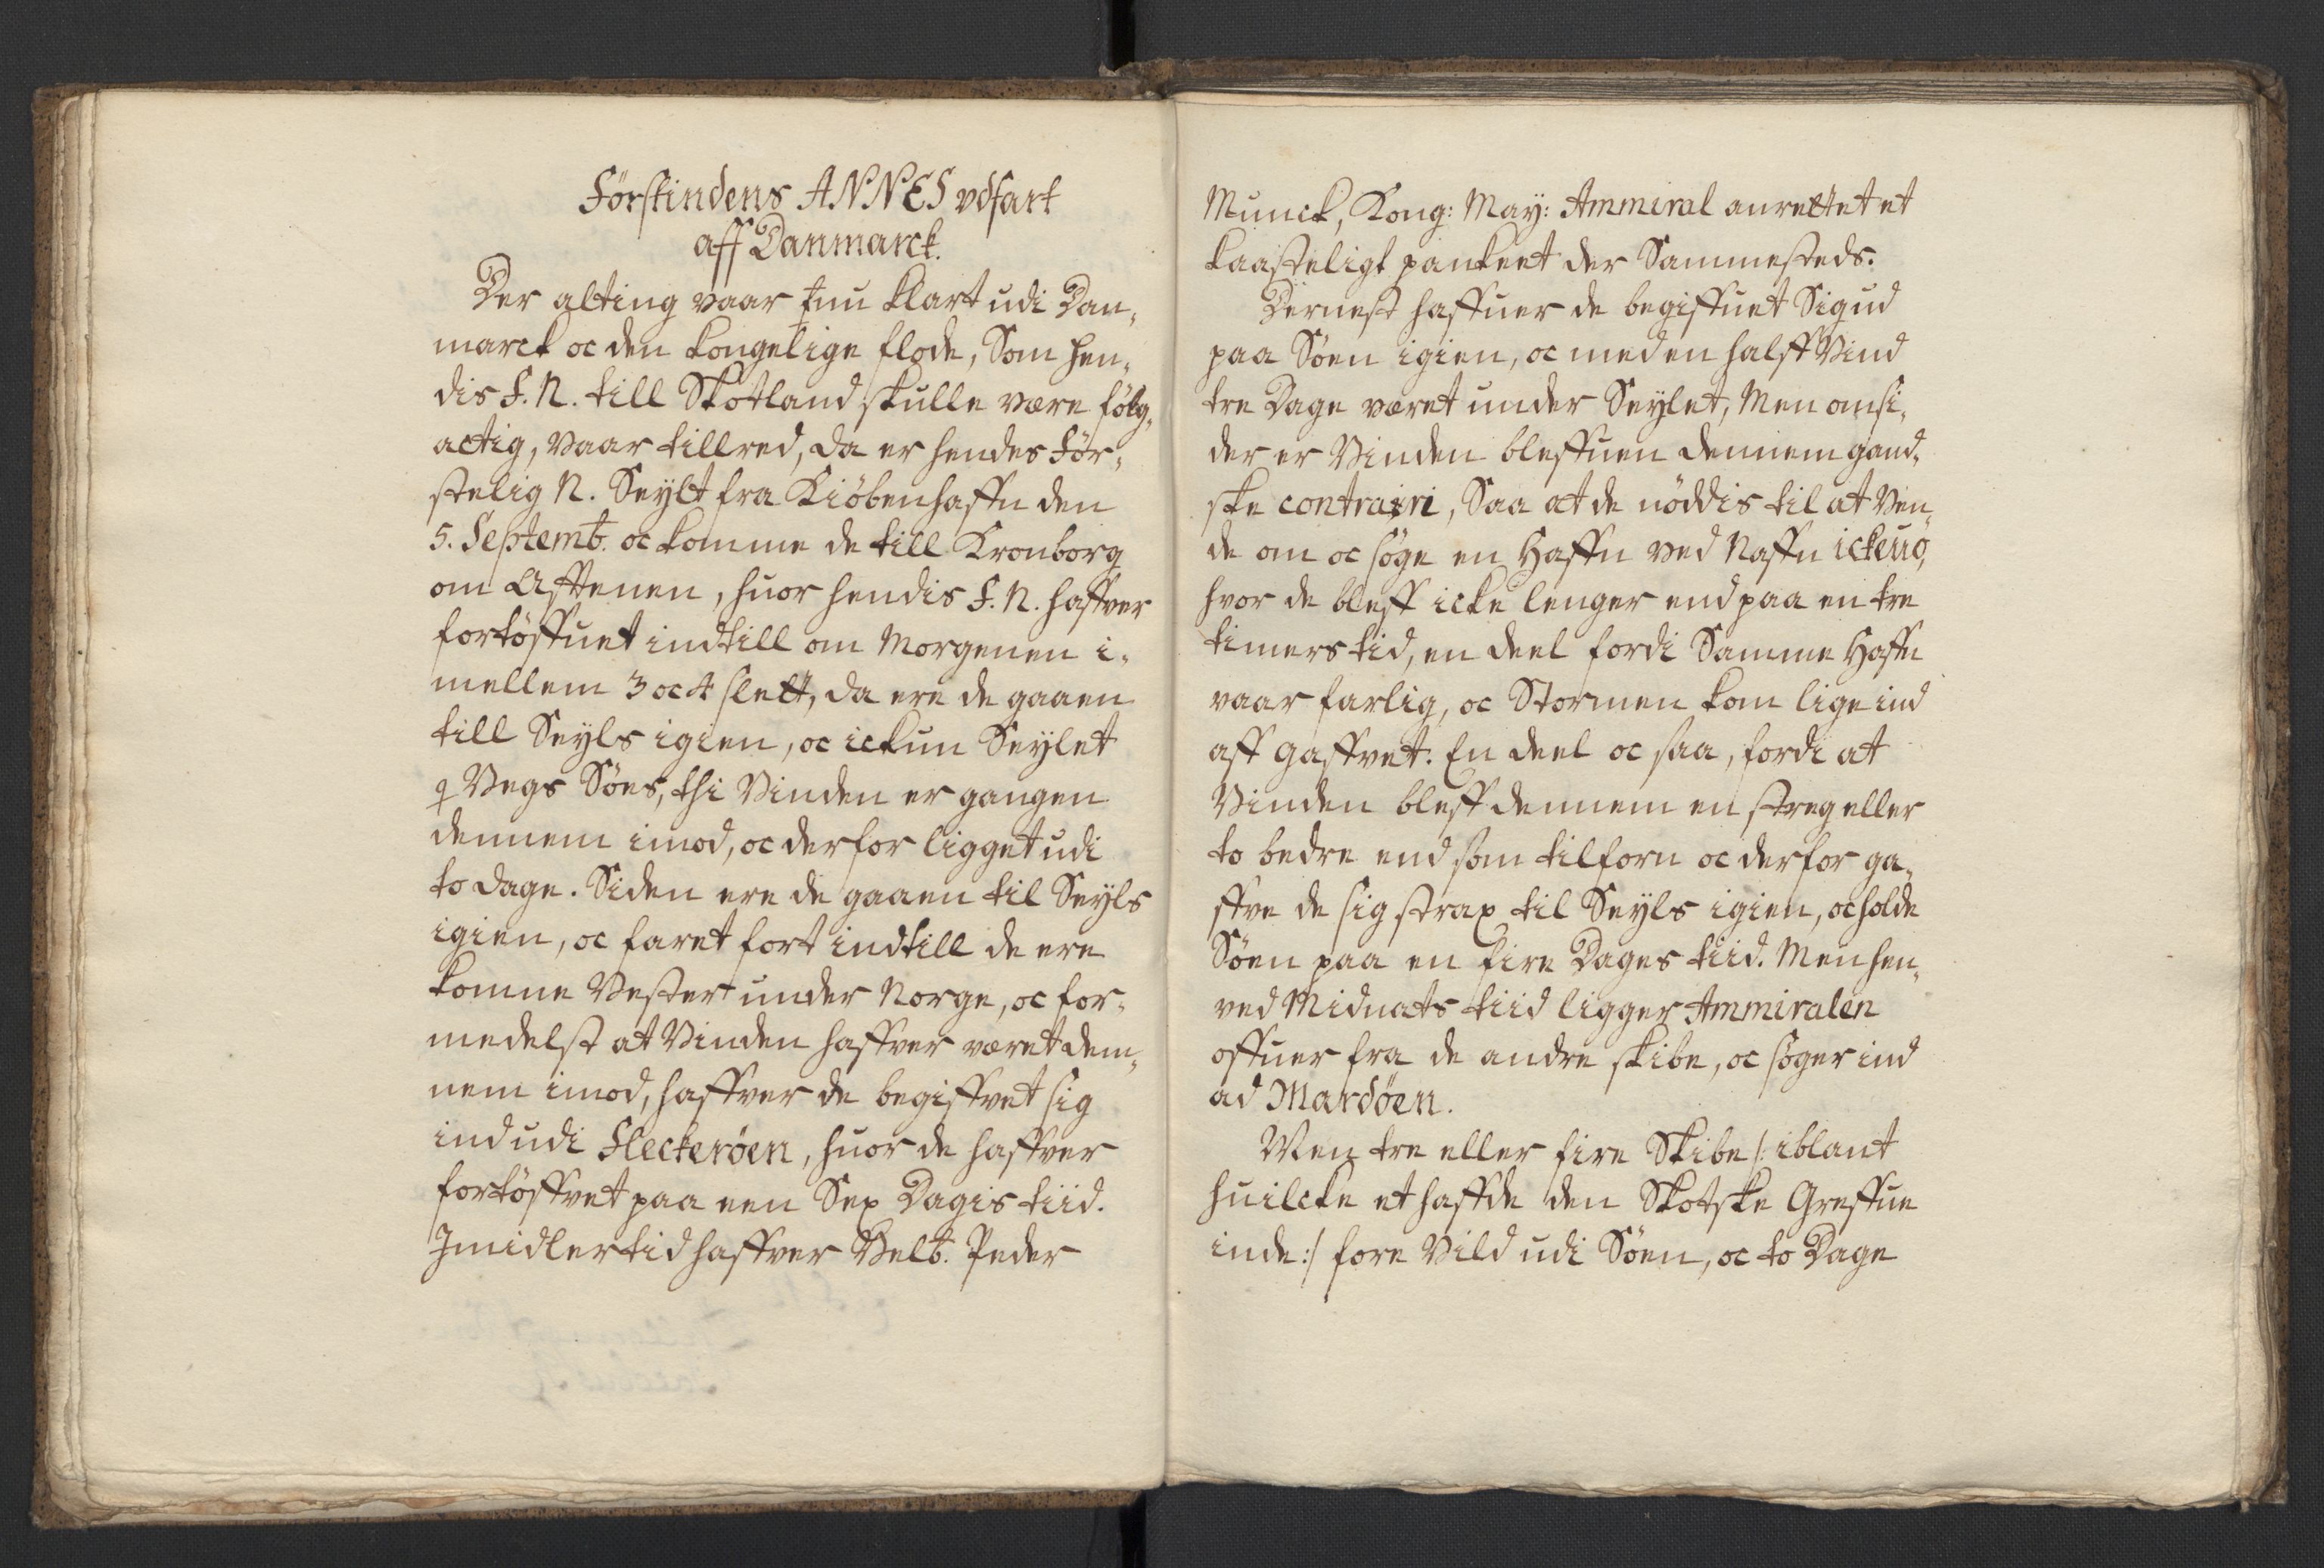 Förstindens ANNES vdfart
aff Danmarck.
Der alting vaar nu klart udi Dan„
marck oc den kongelige flode, Som hen„
dis F. N. till Skotland skulle være fölg„
actig, vaar tillred, da er hendes För„
stelig N. Seylt fra Kiöbenhaffn den
5. Septemb. oc komme de till Kronborg
om Afftenen, huor hendis F. N. haffver
fortöffuet indtill om Morgenen i„
mellem 3 oc 4 slett, da ere de gaaen
till Seyls igien, oc ickun Seylet
Vegs Söes, thi Vinden er gangen
dennem imod, oc derfor ligget udi
to dage. Siden ere de gaaen til Seyls
igien, oc faret fort indtill de ere
komne Vester under Norge, oc for„
medelst at Vinden haffver været den„
nem imod, haffver de begiffvet sig
ind udi Fleckeröen, huor de haffver
fortöffvet paa een Sex Dagis tiid.
Imidlertid haffver Velb. Peder
Munck, Kong: May: Ammiral anrettet et
kaasteligt panket der Sammesteds.
Dernest haffuer de begiffuet Sig ud
paa Söen igien, oc med en halff Vind
tre Dage været under Seylet, Men omsi„
der er Vinden bleffuen dennem gand„
ske contrairi, Saa at de nöddis til at Ven„
de om oc söge en Haffn ved Naffn ickerö,
hvor de bleff icke lenger end paa en tre
timers tid, en deel fordi Samme Haffn
vaar farlig, oc Stormen kom lige ind
aff haffvet. En deel oc saa, fordi at
Vinden bleff dennem en streg eller
to bedre end som tilforn oc derfor ga„
ffve de sig strax til Seyls igien, oc holde
Söen paa en fire Dages tiid. Men hen„
ved Midnats tiid ligger Ammiralen
offuer fra de andre skibe, oc söger ind
ad Mardöen.
Men tre eller fire Skibe /: iblant
huilcke et haffde den Skotske Greffue
inde :/ fore Vild udi Söen, oc to Dage